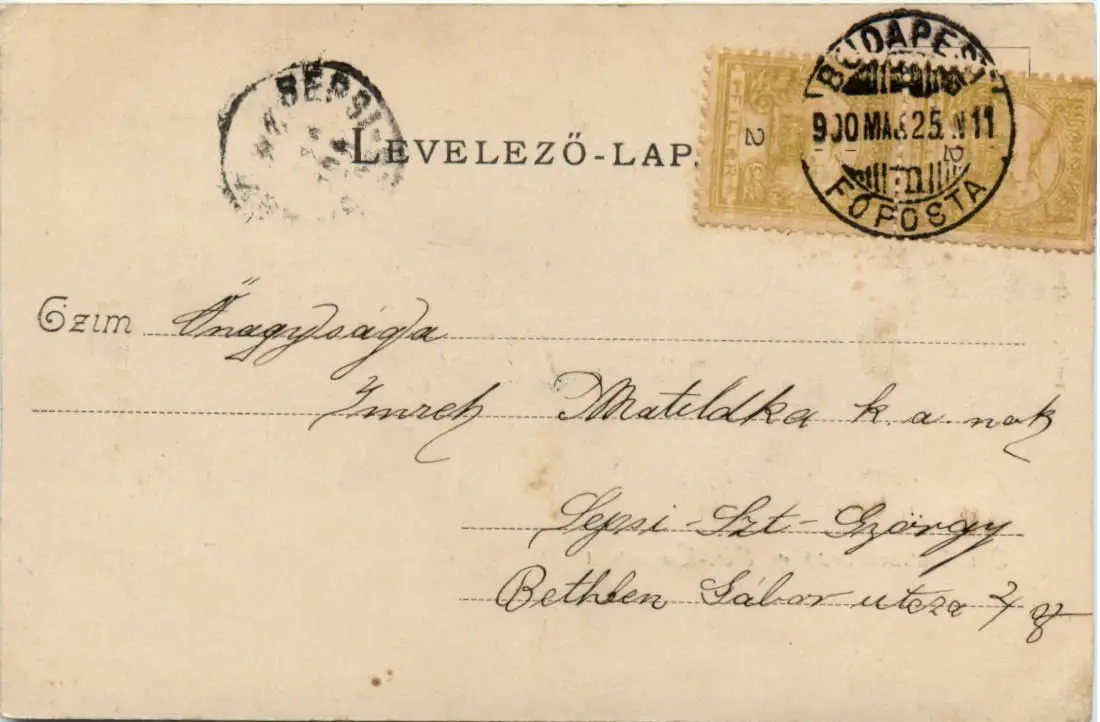 BUDAPEST
900 MÁJ. 25. N 11
FŐPOSTA
FILLÉR
2
2
SEPSI
LEVELEZŐ-LAP.
Czim Őnagysága
Imreh Matildka k. a. nak
Sepsi-Szt-György
Bethlen Gábor utcza 2/